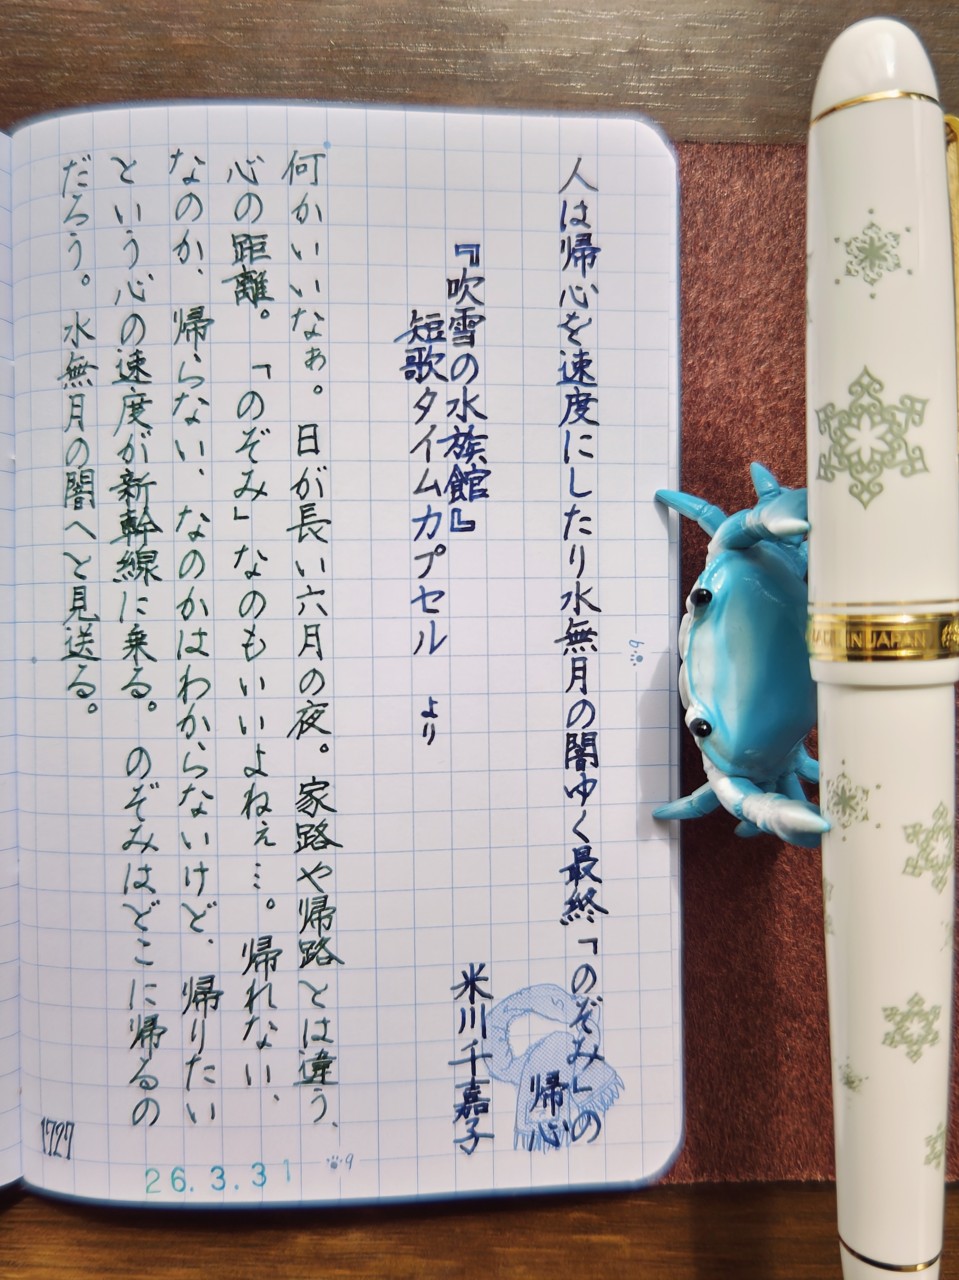 人は帰心を速度にしたり水無月の闇ゆく最終「のぞみ」の
帰心
『吹雪の水族館』
米川千嘉子
短歌タイムカプセル より
何かいいなぁ。日が長い六月の夜。家路や帰路とは違う、
心の距離。「のぞみ」なのもいいよねぇ…。帰れない、
なのか、帰らない、なのかはわからないけど、帰りたい
という心の速度が新幹線に乗る。のぞみはどこに帰るの
だろう。水無月の闇へと見送る。
1727
26.3.31
9
9
MADE IN JAPAN